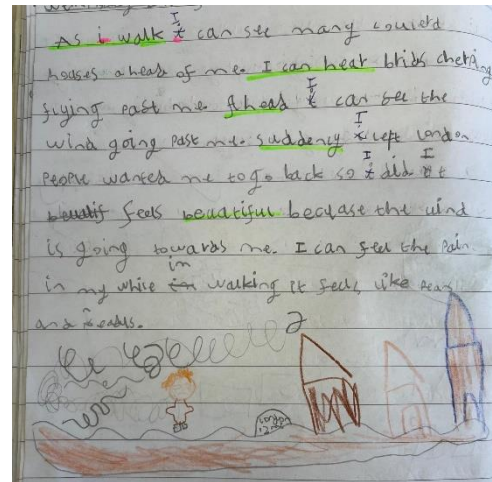 As i walk I can see many coulerd
houses ahead of me. I can hear brids cherping
flying past me. Ahead I can see the
wind going past me. suddeny I left london
People wanted me to go back so I did I t
feels beautiful because the wind
is going towards me. I can feel the Pain
in my while in walking it feels like
and
London